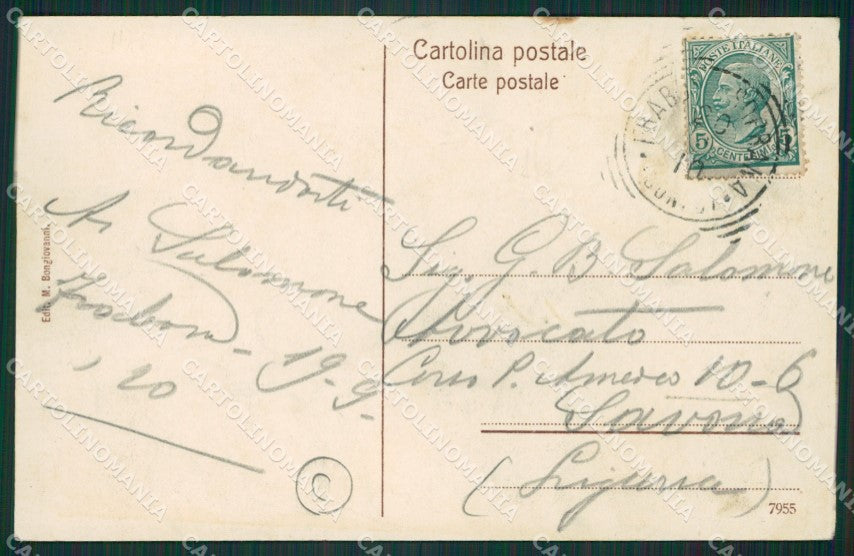 Cartolina postale
Carte postale
POSTE ITALIANE
5 CENTESIMI 5
Ricordandoti
A. Salomone
- 19-9-
20
Sig. G. B. Salomone
Avvocato
Corso P. Amedeo 10-6
Savona
(Liguria)
Edit. M. Bongiovanni.
C
7955
CARTOLINOMANIA